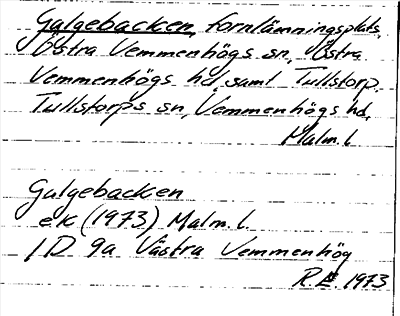 Galgebacken, fornlämningsplats,
Östra Vemmenhögs sn, Östra
Vemmenhögs hd, samt Tullstorp
Tullstorps sn, Vemmenhögs hd,
Malm. l
Galgebacken
ek (1973) Malm. l.
1D 9a Västra Vemmenhög
R.E. 1973